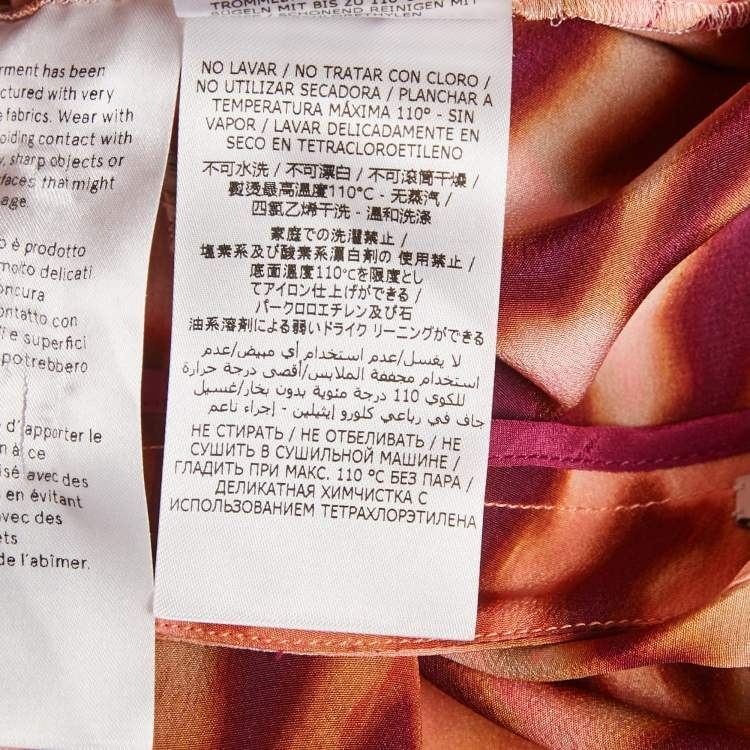 rment has been
ctured with very
fabrics. Wear with
oiding contact with
, sharp objects or
rfaces that might
age.
o è prodotto
molto delicati
oncura
ontatto con
e superfici
potrebbero
d'apporter le
n à ce
isé avec des
s en évitant
avec des
ets
de l'abîmer.
BÜGELN MIT BIS ZU 110
NO LAVAR / NO TRATAR CON CLORO /
NO UTILIZAR SECADORA / PLANCHAR A
TEMPERATURA MÁXIMA 110° - SIN
VAPOR / LAVAR DELICADAMENTE EN
SECO EN TETRACLOROETILENO
不可水洗 / 不可漂白 / 不可滚筒干燥 /
熨烫最高溫度110°C - 无蒸汽 /
四氯乙烯干洗 - 温和洗涤
家庭での洗濯禁止 /
塩素系及び酸素系漂白剤の 使用禁止 /
底面温度110°Cを限度とし
てアイロン仕上げができる /
パークロロエチレン及び石
油系溶剤による弱いドライク リーニングができる
لا يغسل/عدم استخدام أي مبيض/عدم
استخدام مجففة الملابس/أقصى درجة حرارة
للكوي 110 درجة مئوية بدون بخار/غسيل
جاف في رباعي كلورو إيثيلين - إجراء ناعم
НЕ СТИРАТЬ / НЕ ОТБЕЛИВАТЬ / НЕ
СУШИТЬ В СУШИЛЬНОЙ МАШИНЕ /
ГЛАДИТЬ ПРИ МАКС. 110 °C БЕЗ ПАРА /
ДЕЛИКАТНАЯ ХИМЧИСТКА С
ИСПОЛЬЗОВАНИЕМ ТЕТРАХЛОРЭТИЛЕНА